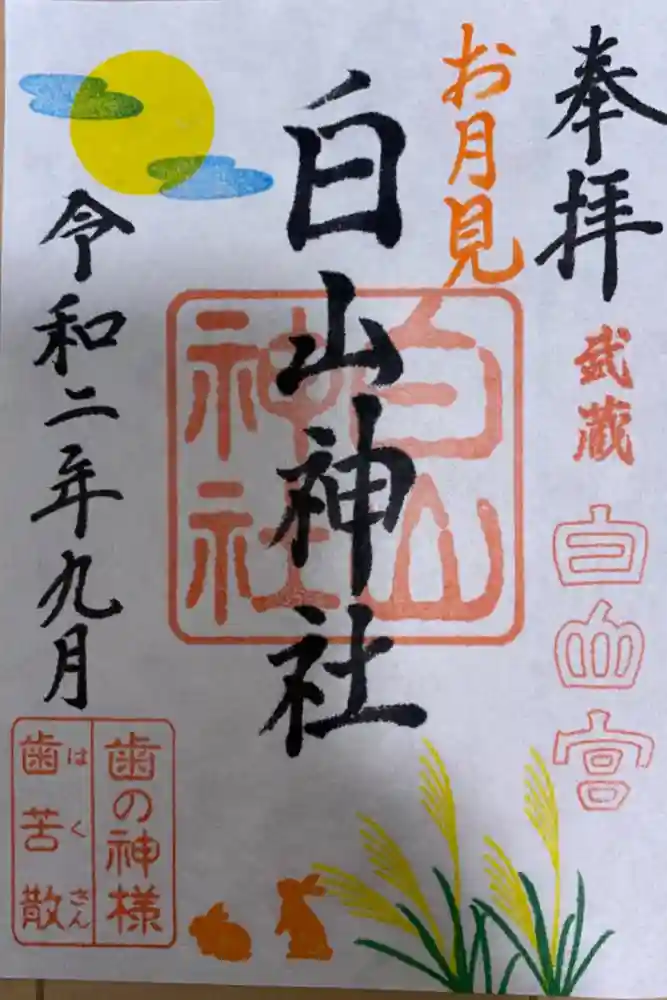 奉拝
武蔵
白山宮
お月見
白山神社
白山
神社
令和二年九月
歯の神様
はくさん
歯苦散